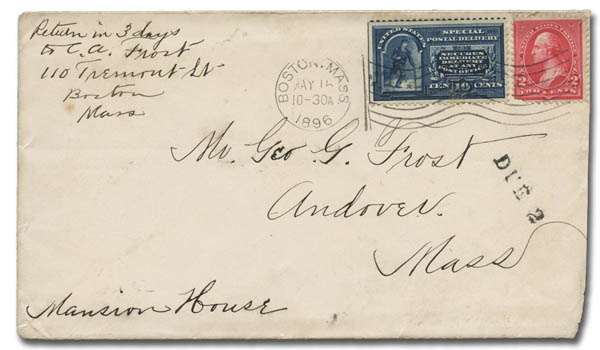 Return in 3 days
to C. A. Frost
110 Tremont St
Boston
Mass
BOSTON, MASS
MAY 14
10-30A
1896
UNITED STATES
SPECIAL
POSTAL DELIVERY
SECURES
IMMEDIATE
DELIVERY
AT ANY
POST OFFICE
TEN 10 CENTS
2 2
TWO CENTS
Mr. Geo G. Frost
Andover.
Mass
DUE 2
Mansion House